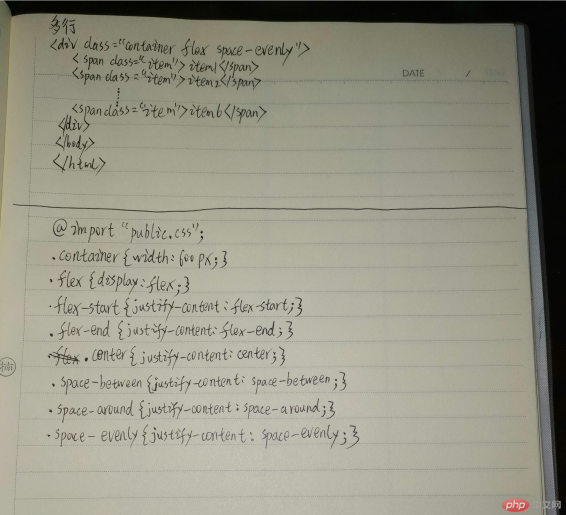 多行
<div class="container flex space-evenly">
<span class="item">item1</span>
<span class="item">item2</span>
⋮
<span class="item">item6</span>
</div>
</body>
</html>
DATE /
@import "public.css";
.container{width:600px;}
.flex{display:flex;}
.flex-start{justify-content:flex-start;}
.flex-end{justify-content:flex-end;}
.center{justify-content:center;}
.space-between{justify-content:space-between;}
.space-around{justify-content:space-around;}
.space-evenly{justify-content:space-evenly;}
php中文网